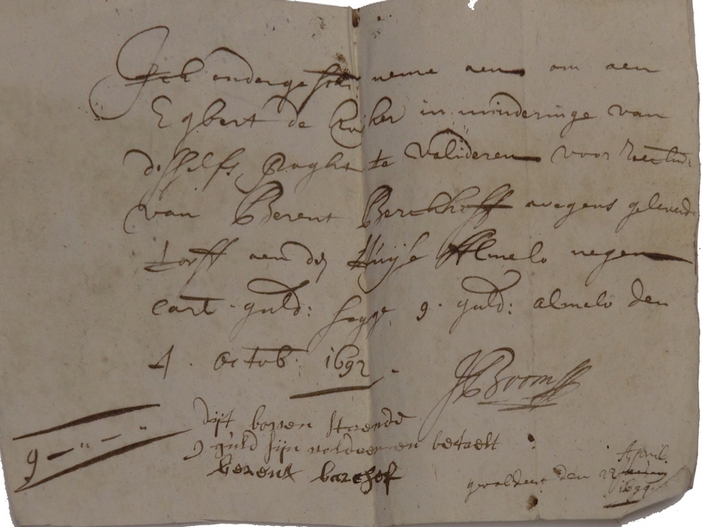 Ick ondergeschr: neme aen om aen
Egbert de Kuiker in minderinge van
deshelfs paght te valideren voor
van Berent Berckhoff wegens gelevert
torff aen den Huyse Almelo negen
carl: guld: segge 9 guld: almelo den
4 octob: 1692
JBoom
Dyt boven staende
9 guld sijn voldaen en betaelt
berent barchof
9 - " - "
den 22 April